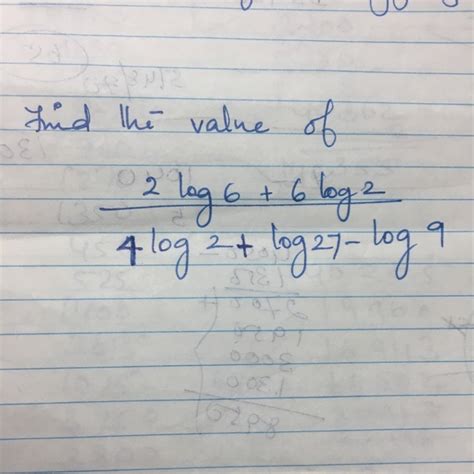 Find the value of
2 log 6 + 6 log 2
4 log 2 + log 27 - log 9